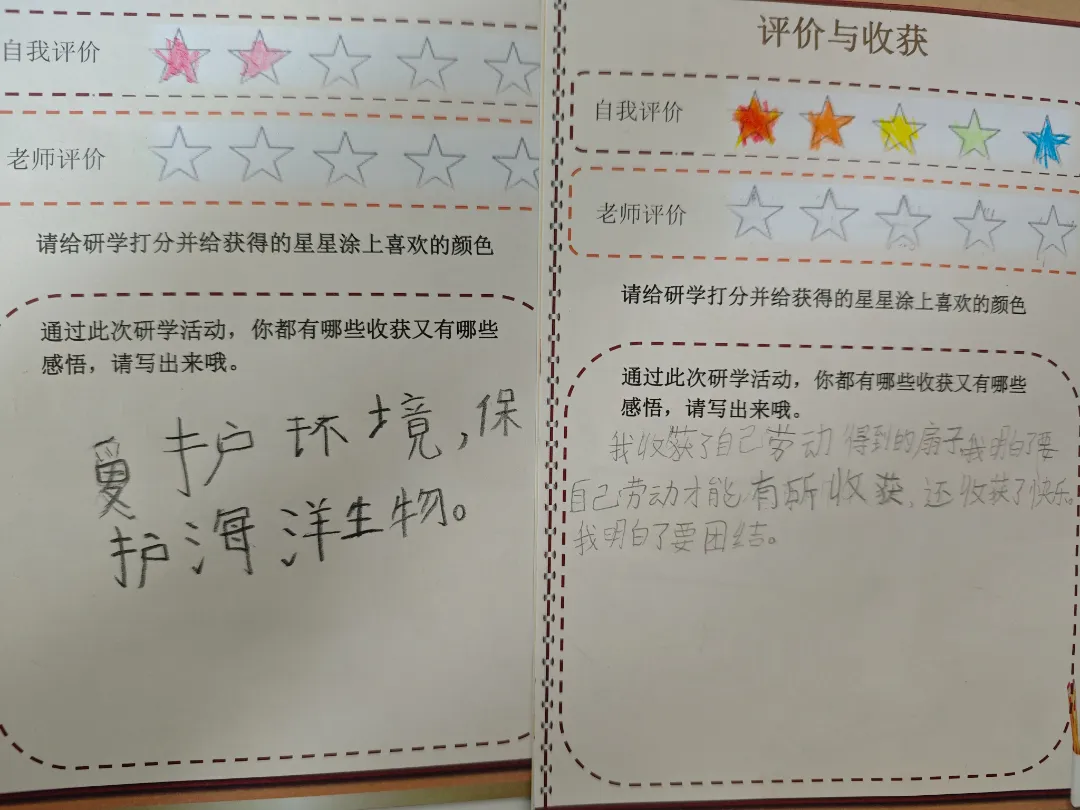 自我评价
老师评价
请给研学打分并给获得的星星涂上喜欢的颜色
通过此次研学活动，你都有哪些收获又有哪些
感悟，请写出来哦。
爱护环境，保
护海洋生物。
评价与收获
自我评价
老师评价
请给研学打分并给获得的星星涂上喜欢的颜色
通过此次研学活动，你都有哪些收获又有哪些
感悟，请写出来哦。
我收获了自己劳动得到的扇子我明白了要
自己劳动才能有所收获，还收获了快乐。
我明白了要团结。